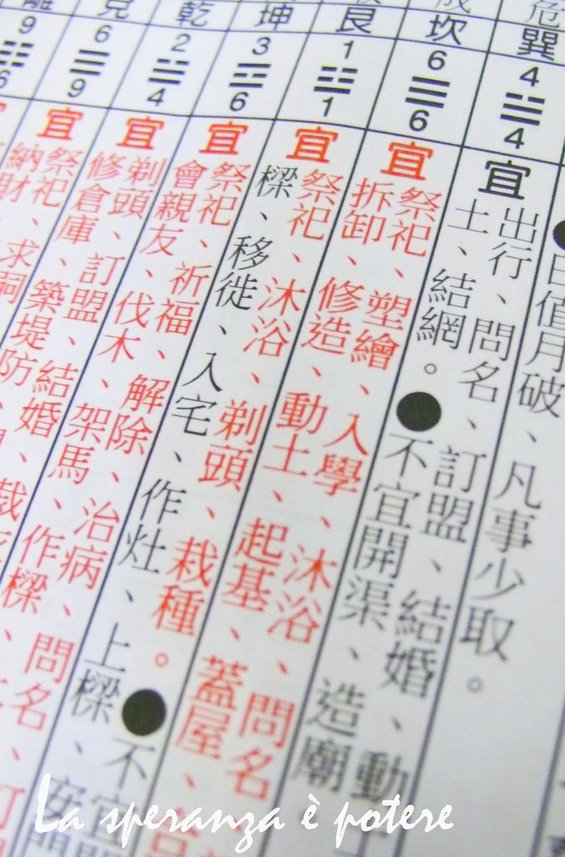 危
巽 坎 艮 坤 乾 兌 離
4 6 1 3 2 6 9
4 6 1 6 4 9 6
●日值月破、凡事少取。
宜
出行、問名、訂盟、結婚、動
土、結網。●不宜開渠、造廟
宜
祭祀、塑繪、入學、沐浴、問名
拆卸、修造、動土、起基、蓋屋、
宜
祭祀、沐浴、剃頭、栽種。●不宜
樑、移徙、入宅、作灶、上樑、安
宜
祭祀、祈福、解除、治病、問名、
會親友、伐木、架馬、作樑、
宜
剃頭、訂盟、結婚、
修倉庫、築堤防、
宜
祭祀、求嗣
納財、
La speranza è potere